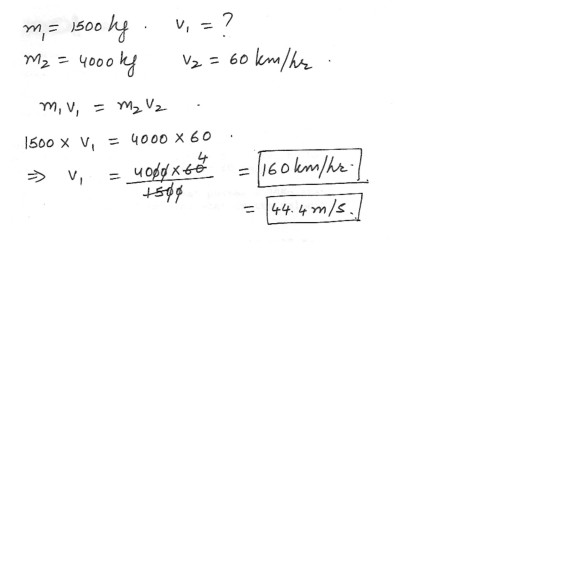 m₁ = 1500 kg . v₁ = ?
m₂ = 4000 kg v₂ = 60 km/hr .
m₁ v₁ = m₂ v₂ .
1500 × v₁ = 4000 × 60 .
⇒ v₁ = 4000 × 60 4 / 1500 = 160 km/hr.
= 44.4 m/s.